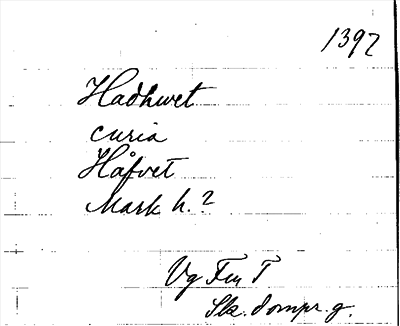 1397
Hadhwet
curia
Håfvet
Mark h.?
Vg Fru T
Sk. dompr. g.